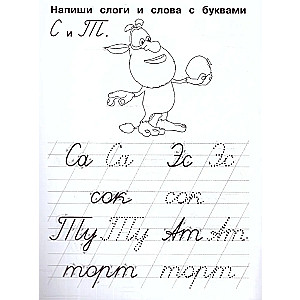 Напиши слоги и слова с буквами
С и Т.
Са Са Эс Эс
сок сок
Ту Ту Ат Ат
торт торт